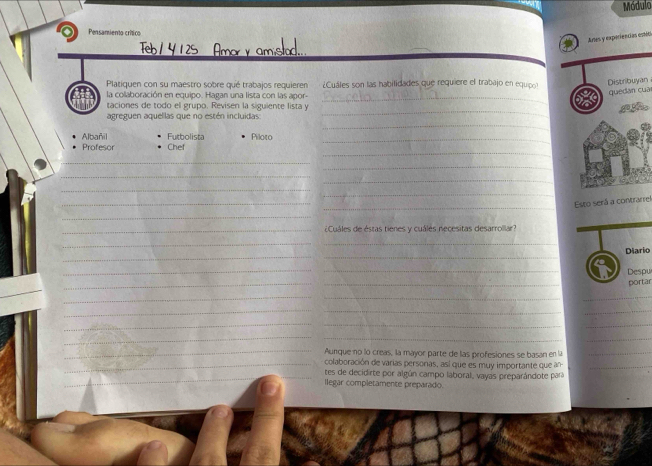 Módulo
Pensamiento crítico
Feb/14/25 Amor y amistad...
Platiquen con su maestro sobre qué trabajos requieren
la colaboración en equipo. Hagan una lista con las apor-
taciones de todo el grupo. Revisen la siguiente lista y
agreguen aquellas que no estén incluidas:
• Albañil • Futbolista • Piloto
• Profesor • Chef
¿Cuáles son las habilidades que requiere el trabajo en equipo?
¿Cuáles de éstas tienes y cuáles necesitas desarrollar?
Aunque no lo creas, la mayor parte de las profesiones se basan en la
colaboración de varias personas, así que es muy importante que an-
tes de decidirte por algún campo laboral, vayas preparándote para
llegar completamente preparado.
Artes y experiencias estét
Distribuyan
quedan cua
Esto será a contrarrel
Diario
Despu
portar